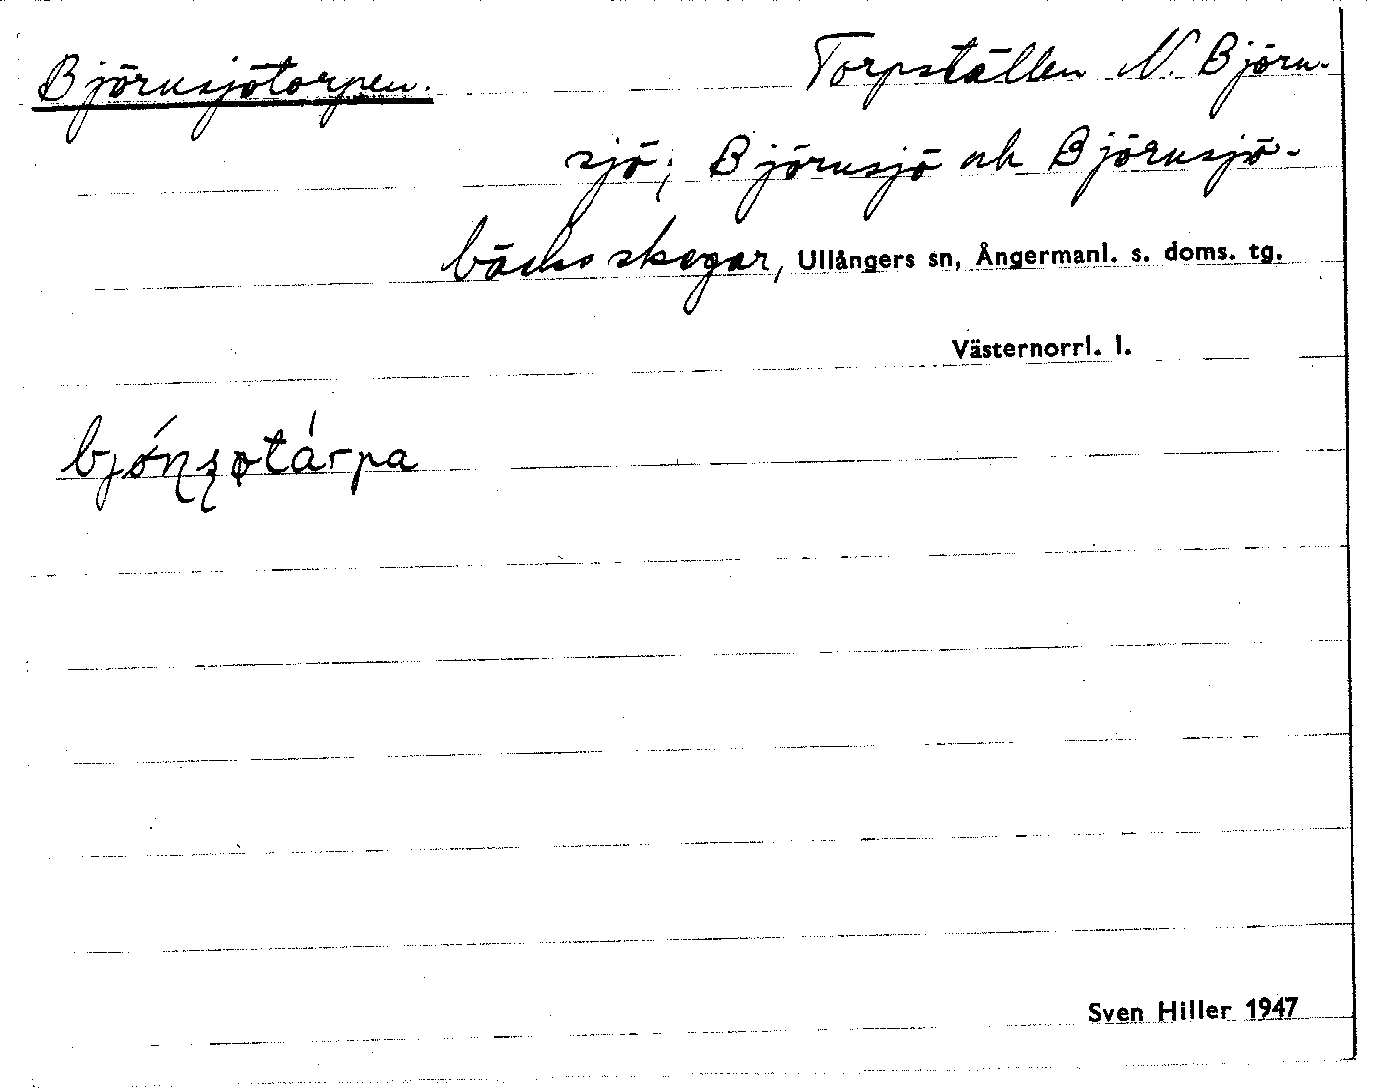 Björnsjötorpen. Torpställen N. Björn-
sjö, Björnsjö och Björnsjö-
bäcks skogar, Ullångers sn, Ångermanl. s. doms. tg.
Västernorrl. l.
Sven Hiller 1947